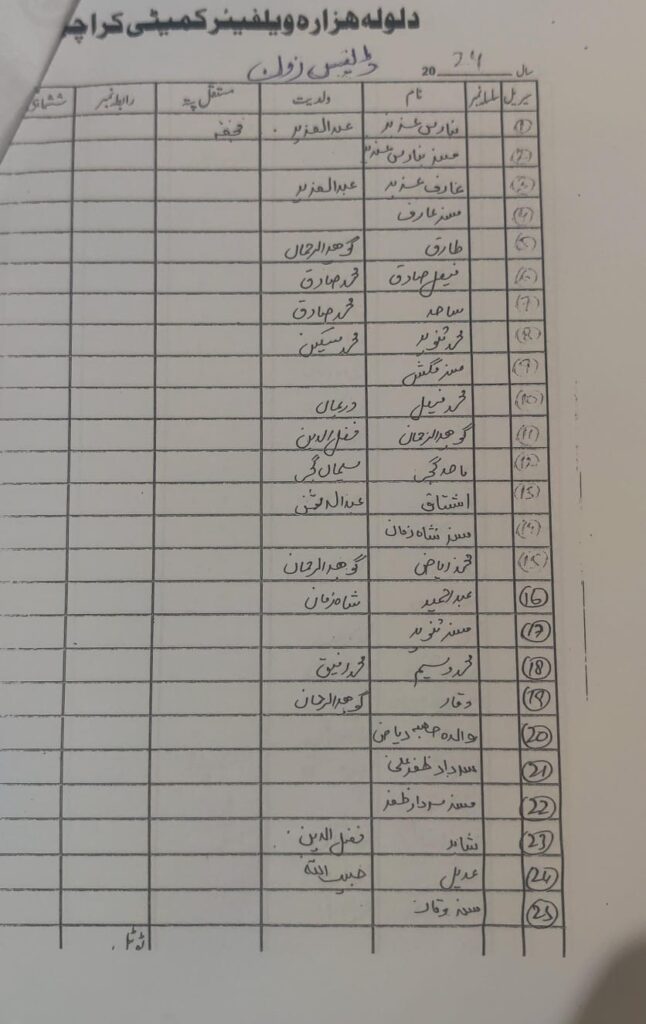 دلولہ ہزارہ ویلفیئر کمیٹی کراچی
ڈیفنس زون
سال 2024
سیریل سلسلہ نمبر نام ولدیت مستقل پتہ رابطہ نمبر
(1) فارس عزیز عبدالعزیز
(2) مسز فارس عزیز
(3) عارف عزیز عبدالعزیز
(4) مسز عارف
(5) طارق گوہرالرحمان
(6) فیصل صادق محمد صادق
(7) ساجد محمد صادق
(8) محمد تنویر محمد مسکین
(9) مسز
(10) محمد فیصل
(11) گوہرالرحمان فضل الدین
(12) ماجد
(13) اشتاق
(14) مسز شاہ زمان
(15) محمد ریاض گوہرالرحمان
(16) عبدالحمید شاہ زمان
(17) مسز تنویر
(18) محمد وسیم محمد رفیق
(19) وقار گوہرالرحمان
(20) والدہ صاحبہ ریاض
(21) سردار ظفر علی
(22) مسز سردار ظفر
(23) شاہد فضل الدین
(24) عدیل حبیب اللہ
(25) مسز وقار
ٹوٹل